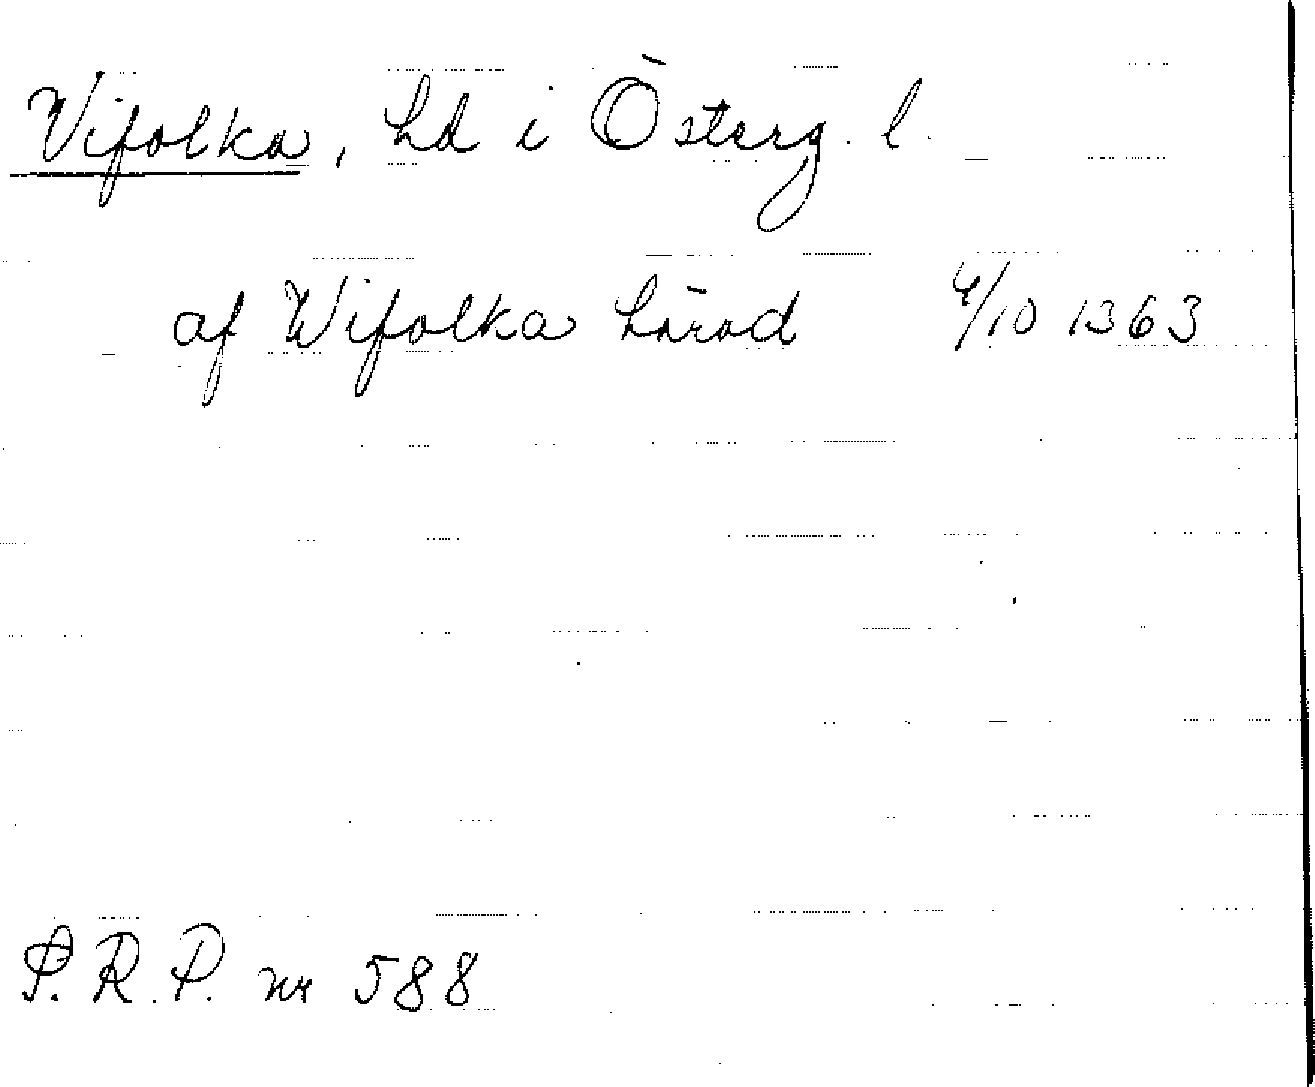 Vifolka, hd i Österg. l.
af Wifolka härad 4/10 1363
S.R.P. nr 588